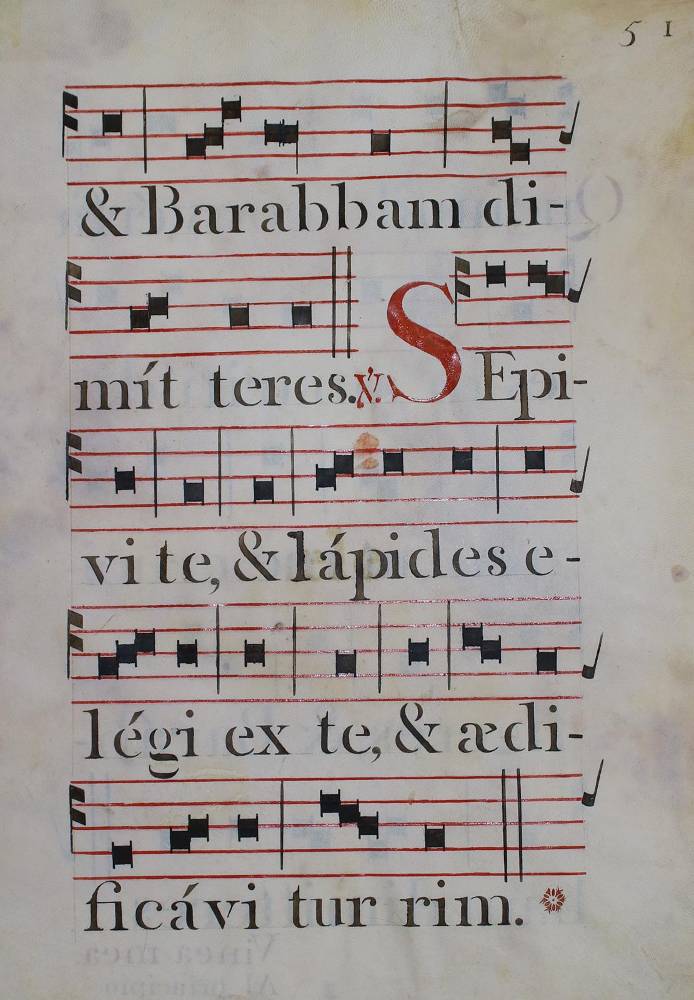 51
& Barabbam di-
mít teres. ℣. SEpi-
vi te, & lápides e-
légi ex te, & ædi-
ficávi tur rim.